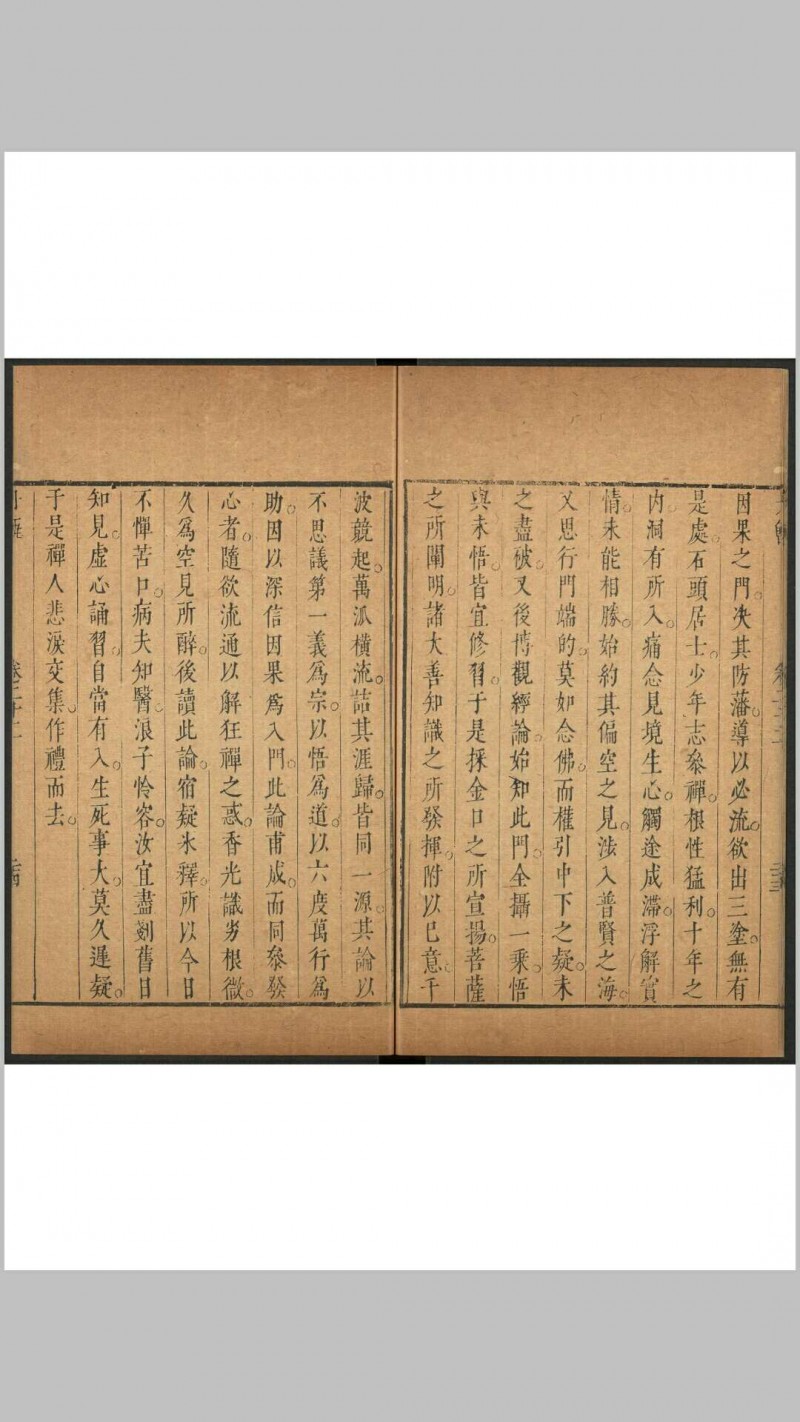 因果之門。决其防藩。導以必流。欲出三塗。無有
是處。石頭居士。少年志叅禪。根性猛利。十年之
內。洞有所入。痛念見境生心。觸途成滯。浮解實
情。未能相勝。始約其偏空之見。法入普賢之海。
又思行門端的。莫如念佛。而權引中下之疑。未
之盡被。又後博觀經論。始知此門。全攝一乘。悟
與未悟。皆宜修習。于是採金口之所宣揚。菩薩
之所闡明。諸大善知識之所發揮。附以已意。千
波競起。萬派橫流。詰其涯歸。皆同一源。其論以
不思議第一義為宗。以悟為道。以六度萬行為
助因。以深信因果為入門。此論甫成。而同叅發
心者。隨欲流通。以解狂禪之惑。香光識劣根微。
久為空見所醉。後讀此論。宿疑氷釋。所以今日
不憚苦口。病夫知醫。浪子怜容。汝宜盡剗舊日
知見。虛心誦習。自當有入。生死事大。莫久遲疑。
于是禪人悲淚交集。作禮而去。
卷二十二